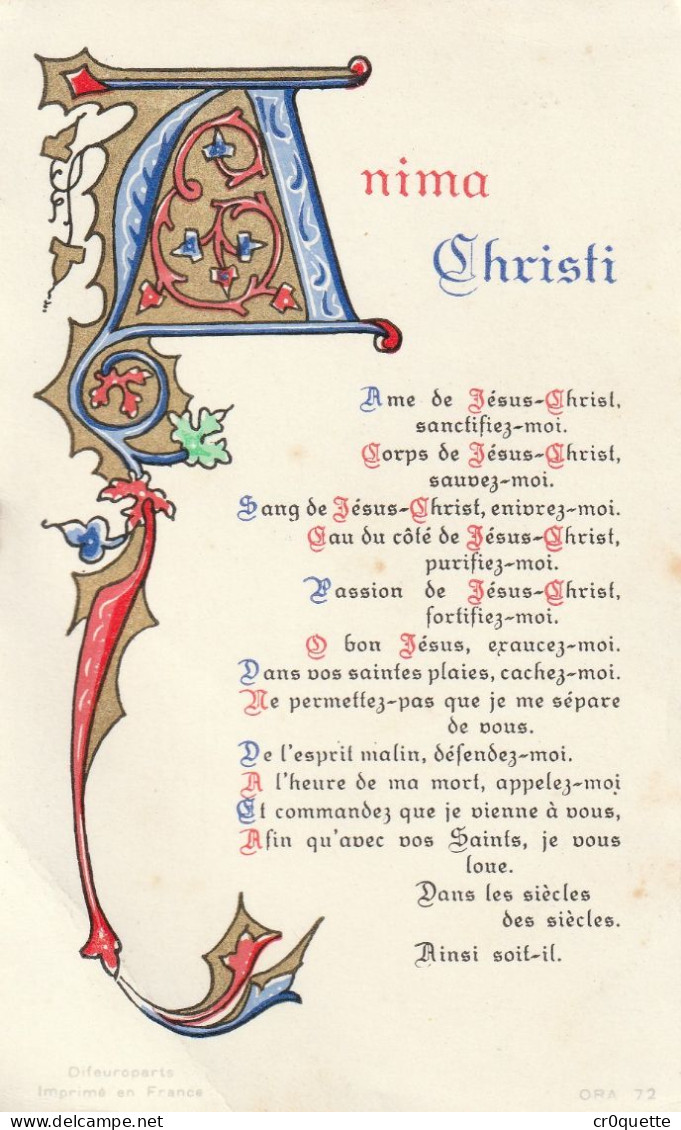 Anima
Christi
Ame de Jésus-Christ,
sanctifiez-moi.
Corps de Jésus-Christ,
sauvez-moi.
Sang de Jésus-Christ, enivrez-moi.
Eau du côté de Jésus-Christ,
purifiez-moi.
Passion de Jésus-Christ,
fortifiez-moi.
O bon Jésus, exaucez-moi.
Dans vos saintes plaies, cachez-moi.
Ne permettez-pas que je me sépare
de vous.
De l'esprit malin, défendez-moi.
A l'heure de ma mort, appelez-moi
Et commandez que je vienne à vous,
Afin qu'avec vos Saints, je vous
loue.
Dans les siècles
des siècles.
Ainsi soit-il.
Difeuroparts
Imprimé en France
ORA 72
delcampe.net
cr0quette